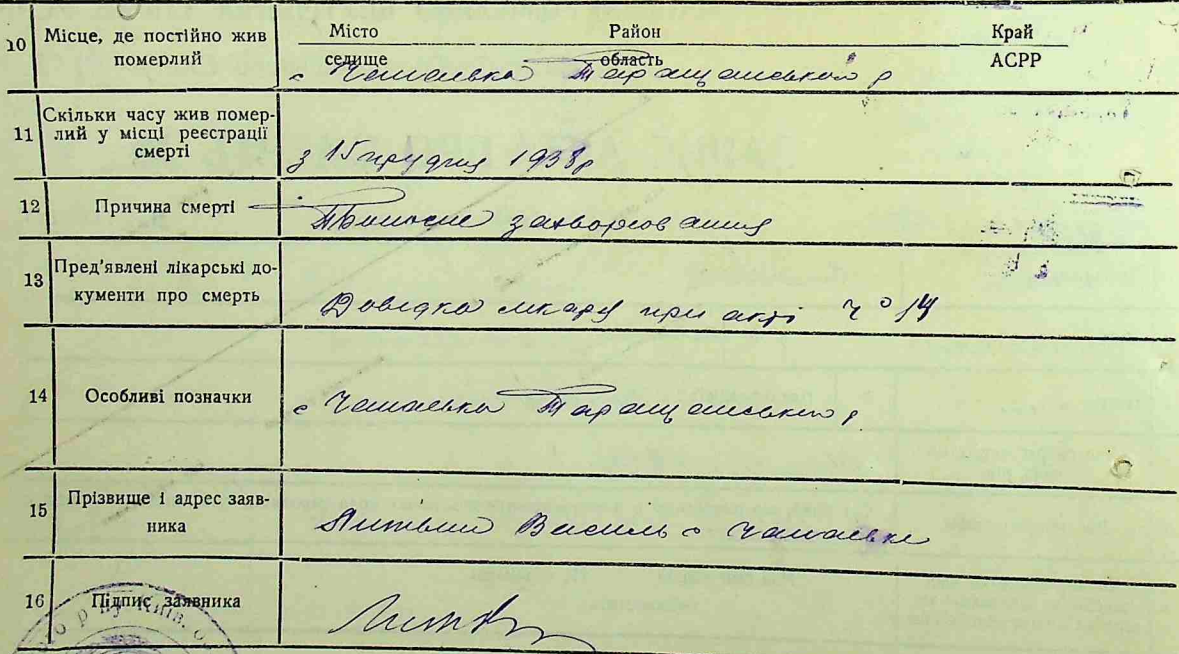 10 Місце, де постійно жив Місто Район Край
померлий селище область АСРР
с Чапаєвка Таращанського р
11 Скільки часу жив помер-
лий у місці реєстрації
смерті
з 15 грудня 1938р
12 Причина смерті захворювання
13 Пред'явлені лікарські до-
кументи про смерть
Довідка лікаря при акті № 14
14 Особливі позначки с Чапаєвка Таращанського р.
15 Прізвище і адрес заяв-
ника
Литвин Василь с Чапаєвка
16 Підпис заявника Литв